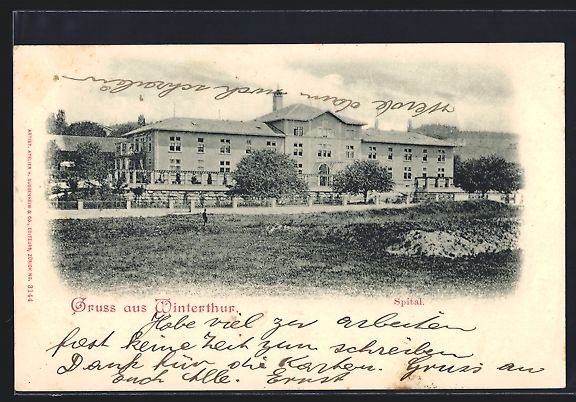 Werde dann noch schreiben
ARTIST. ATELIER H. GUGGENHEIM & CO., EDITEURS, ZÜRICH No. 3144
Gruss aus Winterthur.
Spital.
Habe viel zu arbeiten
fast keine Zeit zum schreiben
Dank für die Karten. Gruss an
euch Alle. Ernst